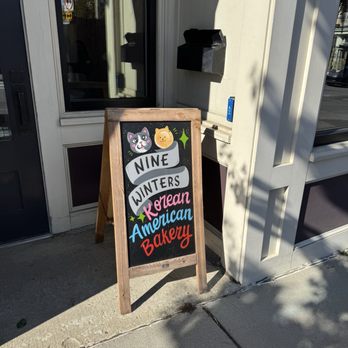 NINE
WINTERS
Korean
American
Bakery